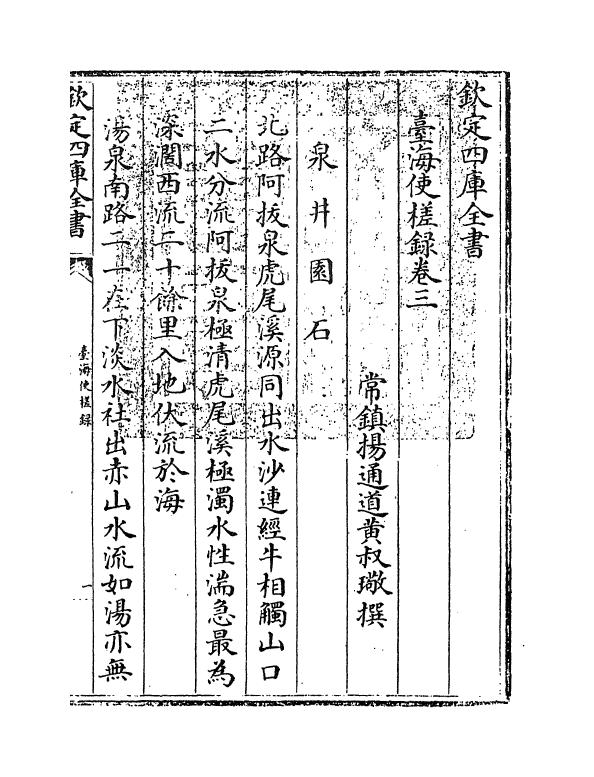 欽定四庫全書
臺海使槎録卷三
常鎮揚通道黄叔璥撰
泉井園石
北路阿拔泉虎尾溪源同出水沙連經牛相觸山口
二水分流阿拔泉極清虎尾溪極濁水性湍急最為
深濶西流二十餘里入地伏流於海
湯泉南路二一在下淡水社出赤山水流如湯亦無
欽定四庫全書
臺海使槎録
一